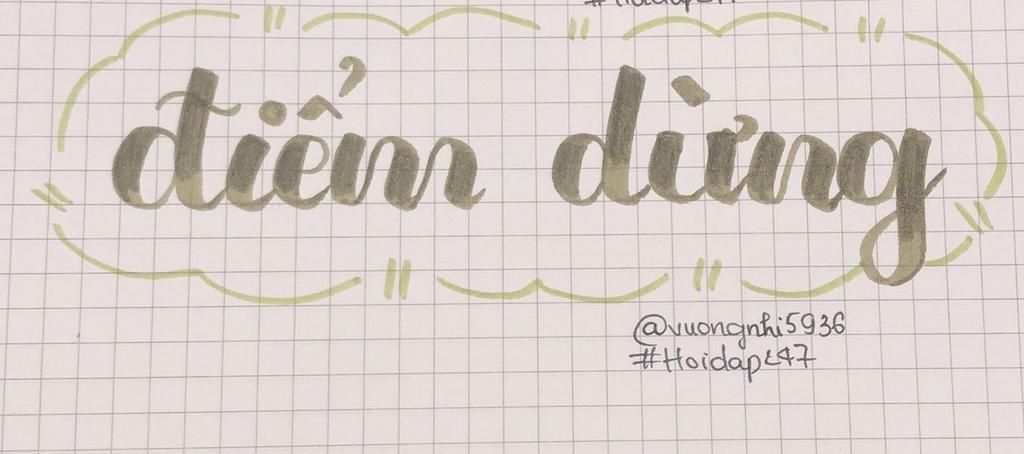 điểm dừng
@vuongnhi5936
#Hoidap247